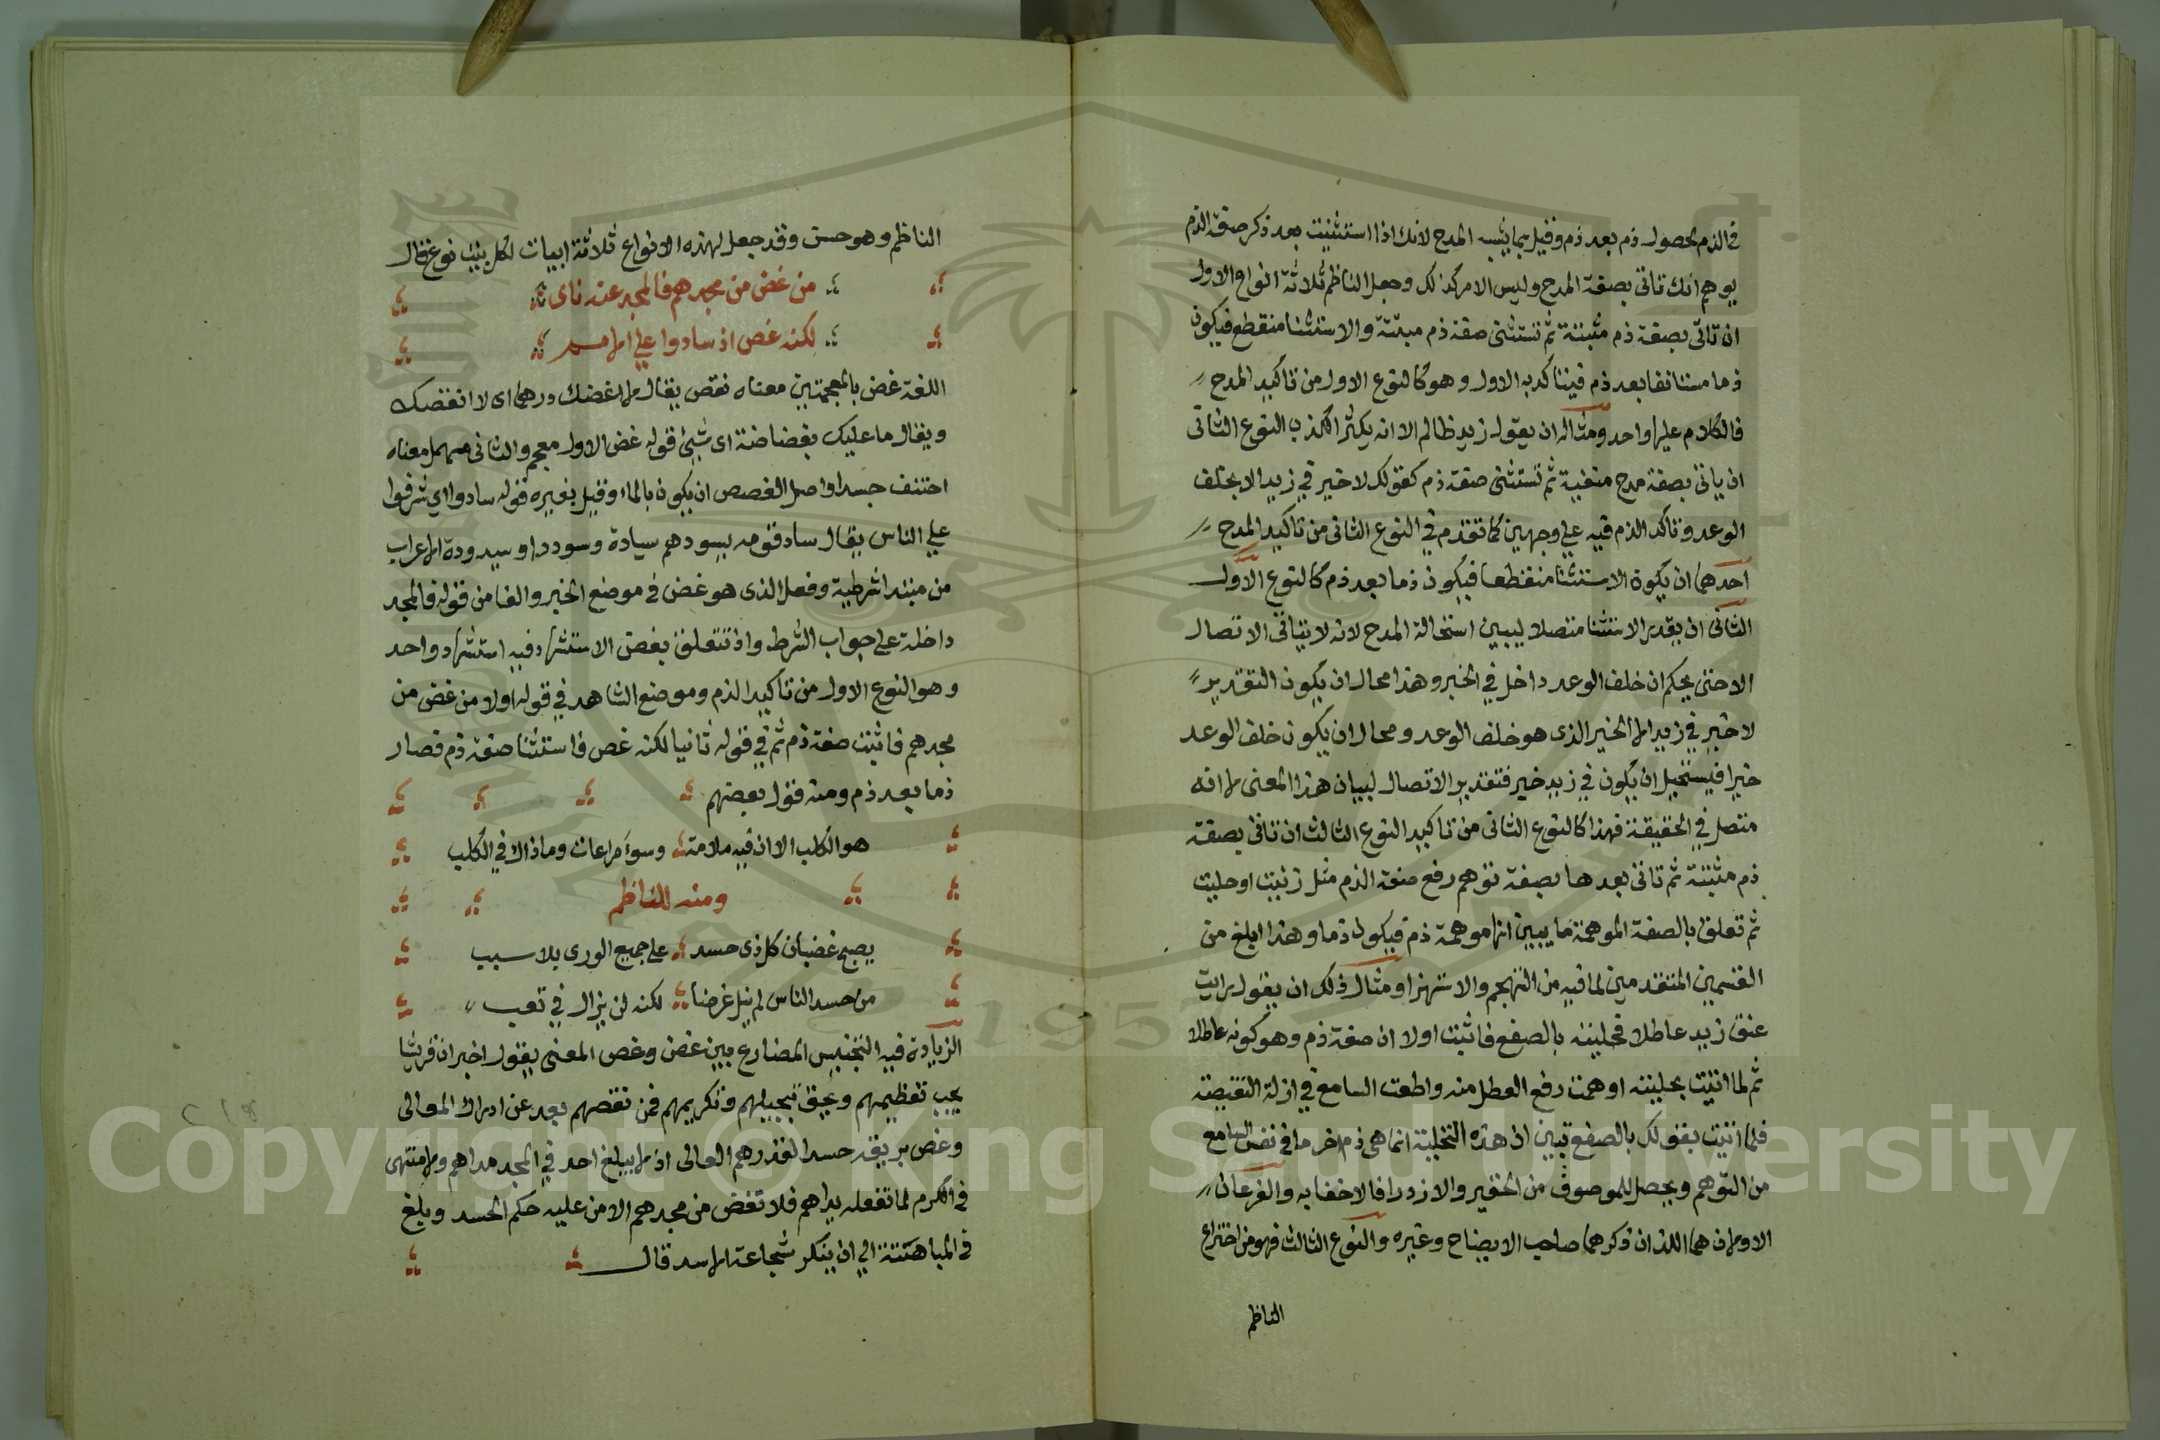 في الذم لحصول ذم بعد ذم وقيل بما يشبه المدح لانك اذا استثنيت بعد ذكر صفة الذم
يوهم انك تاتي بصفة المدح وليس الامر كذلك وجعل الناظم ثلاثة انواع الاول
ان تاتي بصفة ذم مثبتة ثم تستثني صفة ذم مبينة والاستثنا منقطع فيكون
ذما مستانفا بعد ذم فيتاكد به الاول وهو كالنوع الاول من تاكيد المدح
فالكلام عليها واحد ومثاله ان يقول زيد ظالم الا انه يكثر الكذب النوع الثاني
ان ياتي بصفة مدح منفية ثم تستثني صفة ذم كقولك لا خير في زيد الا بخلف
الوعد وتاكد الذم فيه علي وجهين كما تقدم في النوع الثاني من تاكيد المدح
احدهما ان يكون الاستثنا منقطعا فيكون ذما بعد ذم كالنوع الاول
الثاني ان يقدر الاستثنا متصلا ليبين استحالة المدح لانه لا يتاتي الاتصال
الا حتي يحكم ان خلف الوعد داخل في الخير وهذا محال ان يكون التقدير
لا خير في زيد الا الخير الذي هو خلف الوعد ومحال ان يكون خلف الوعد
خيرا فيستحيل ان يكون في زيد خير فتقدير الاتصال لبيان هذا المعني لا انه
متصل في الحقيقة فهذا كالنوع الثاني من تاكيد النوع الثالث ان تاتي بصفة
ذم مثبتة ثم تاتي بعدها بصفة توهم رفع صفة الذم مثل زينت او حليت
ثم تعلق بالصفة الموهمة ما يبين انها موهمة ذم فيكون ذما وهذا ابلغ من
القسمين المتقدمين لما فيه من التهجم والاستهزا ومثال ذلك ان يقول رايت
عنق زيد عاطلا فحليته بالصفع فاثبت اولا ان صفة ذم وهو كونه عاطلا
ثم لما اتيت بحليته اوهمت رفع العطل منه واطعت السامع في ازلة النقيصة
فلما اتيت بقولك بالصفع تبين ان هذه التحلية انما هي ذم اخر ما في نفس السامع
من التوهم ويحصل للموصوف من الحقير والازدرا فالاخفا به والفرعان
الاولان هما اللذان ذكرهما صاحب الايضاح وغيره والنوع الثالث فهو من اختراع
الناظم
الناظم وهو حسن وقد جعل لهذه الانواع ثلاثة ابيات لكل بيت نوع فقال
من غض من مجدهم فالمجد عنه ناى
لكنه غص اذ سادوا علي الامم
اللغة غض بالمعجمتين معناه نقص يقال لا اغضك درهما اي لا انقصك
ويقال ما عليك بغضاضة اي شيئ قوله غض الاول معجم والثاني مهمل معناه
اختنف حسدا واصل الغصص ان يكون بالماء وقيل بغيره قوله سادوا اي شرفوا
علي الناس يقال ساد قومه يسودهم سيادة وسوددا وسيدودة الاعراب
من مبتدا شرطية وفعل الذي هو غض في موضع الخبر والفا من قوله فالمجد
داخلة على جواب الشرط واذ تتعلق بغص الاستشهاد فيه استشهاد واحد
وهو النوع الاول من تاكيد الذم وموضع الشاهد في قوله اولا من غض من
مجدهم فاثبت صفة ذم ثم في قوله ثانيا لكنه غص فاستثنا صفة ذم فصار
ذما بعد ذم ومنه قول بعضهم
هو الكلب الا ان فيه ملامة وسوء مراعات وما ذاك في الكلب
ومنه للناظم
يصبح غضبان كل ذي حسد على جميع الوري بلا سبب
من حسد الناس لم ينل غرضا لكنه لن يزال في تعب
الزيادة فيه التجنيس المضارع بين غض وغص المعني يقول اخبر ان قريشا
يجب تعظيمهم ويحق تبجيلهم وتكريمهم فمن نقصهم بعد عن ادراك المعالي
وغص بريقه حسدا لقدرهم العالي اذ لا يبلغ احد في المجد مداهم ولا منتهى
في الكرم لما تفعله يداهم فلا تغض من مجدهم الا من عليه حكم الحسد وبلغ
في المباهتة الي ان ينكر شجاعة الاسد قال
Copyright © King Saud University
1957